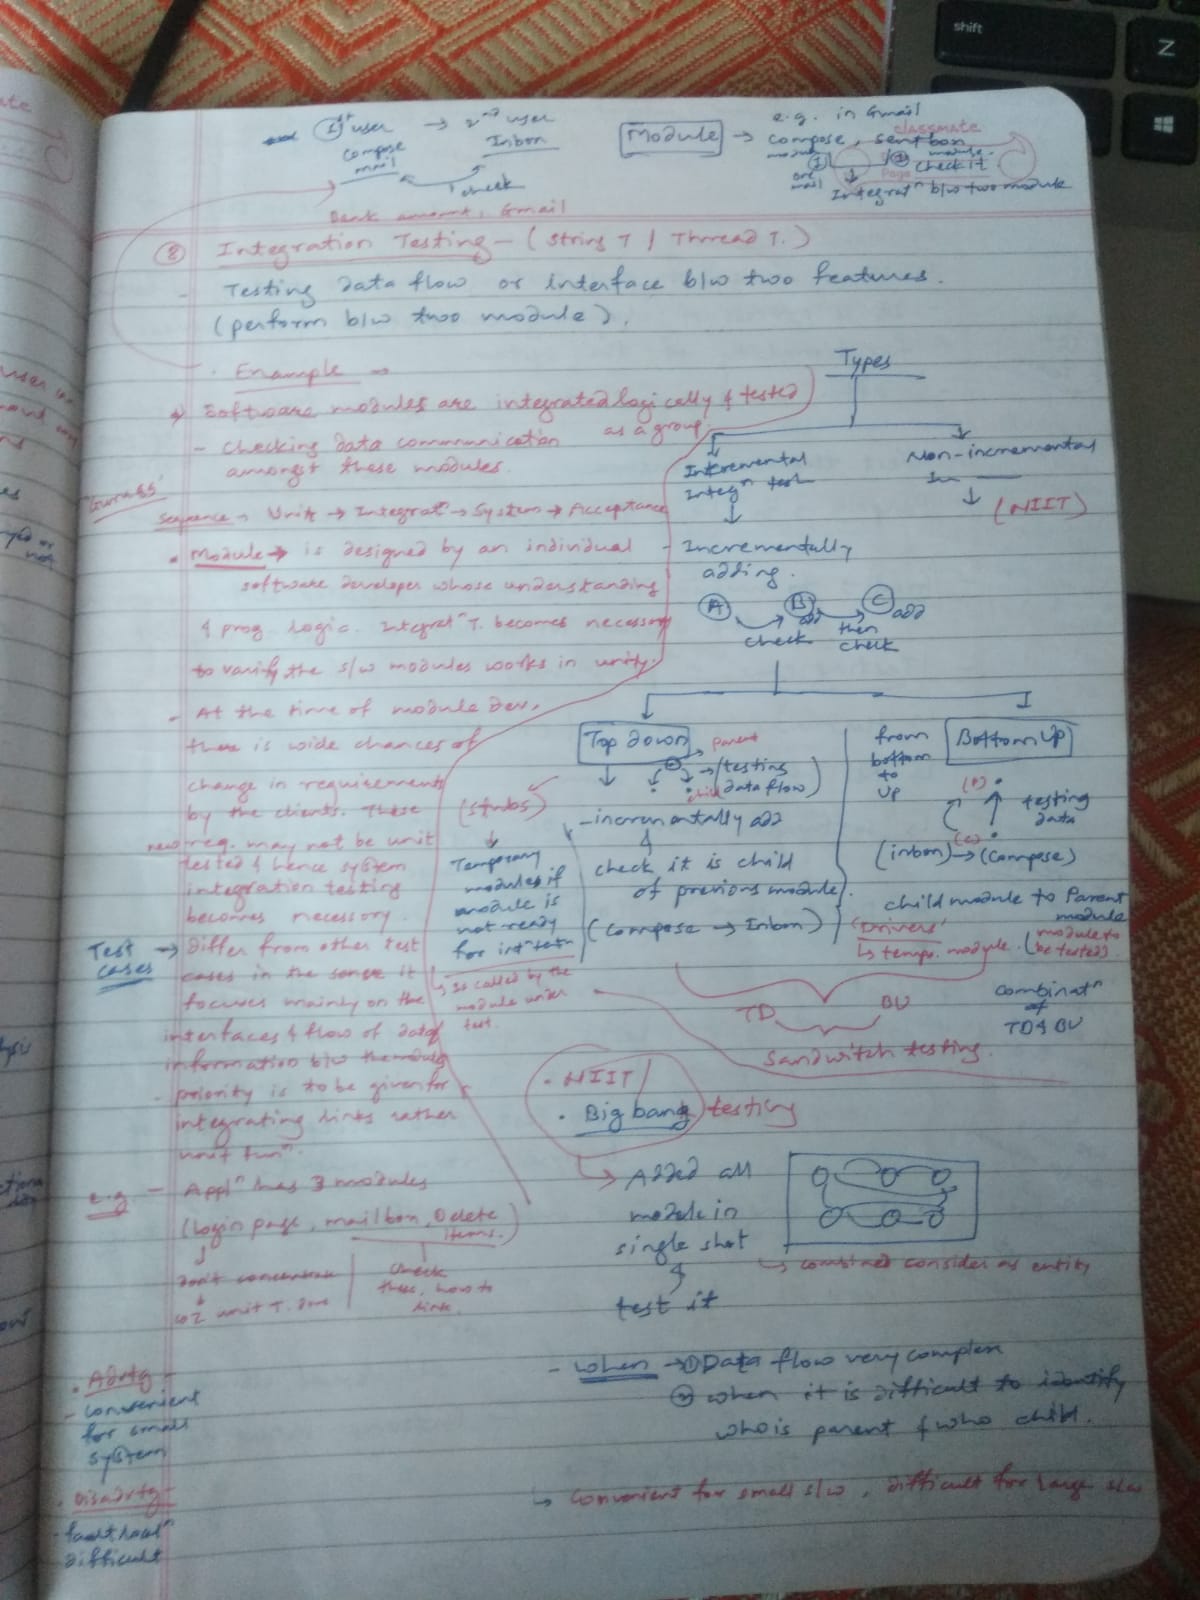 1st user → 2nd user
compose mail
Inbox
check
Module → e.g. in Gmail
compose, sent box
module
module
one mail
check it
Integratn b/w two module
classmate
Page
Bank amount, Gmail
② Integration Testing - (String T / Thread T.)
- Testing data flow or interface b/w two features.
(perform b/w two module).
. Example →
Software modules are integrated logically & tested as a group.
- Checking data communication
amongst these modules.
"Guru99"
Sequence → Unit → Integratn → System → Acceptance
. Module → is designed by an individual
software developer whose understanding
& prog. logic. Integratn T. becomes necessary
to varify the s/w modules works in unity.
- At the time of module Dev.
there is wide chances of
change in requirements
by the clients. These
new req. may not be unit
tested & hence system
integration testing
becomes necessary.
Test cases → differ from other test
cases in the sense it
focuses mainly on the
interfaces & flow of data/
information b/w the module
- priority is to be given for
integrating links rather
unit funn.
e.g - Appln has 3 modules
(Login page, mail box, Delete items.)
Don't concentrate
coz unit T. done
Check
these, how to
link.
. Advtg -
- Convenient
for small
system
. Disadvtg -
- fault locatn
difficult
Types
Incremental
Integn test
Non-incremental
In
(NIIT)
- Incrementally
adding.
A B C
add
add
check
then
check
Top down
parent
child
(testing
data flow)
- incrementally add
check it is child
of previous module.
(Compose → Inbox)
(stubs)
Temporary
modules if
module is
not ready
for int testn
Is called by the
module under
test.
from
bottom
to
up
Bottom Up
(P)
(C)
testing
data
(inbox) → (Compose)
child module to Parent
module
'Drivers'
↳ tempo. module. (module to
be tested)
TD BU
Sandwitch testing.
Combinatn
of
TD & BU
. NIIT /
. Big bang testing
→ Added all
module in
single shot
test it
↳ combined consider as entity
- when → ① Data flow very complex
② when it is difficult to identify
who is parent & who child.
↳ Convenient for small s/w, difficult for large s/w
shift
Z